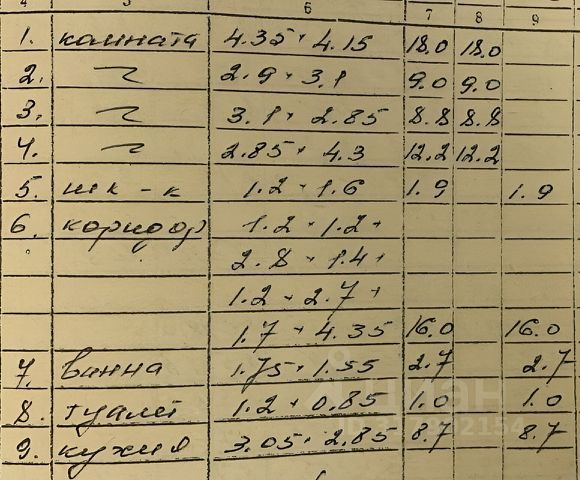 4 5 6 7 8 9
1. комната 4.35 · 4.15 18.0 18.0
2. ~ 2.9 · 3.1 9.0 9.0
3. ~ 3.1 · 2.85 8.8 8.8
4. ~ 2.85 · 4.3 12.2 12.2
5. шк - к 1.2 · 1.6 1.9 1.9
6. коридор 1.2 · 1.2 +
2.8 · 1.4 +
1.2 · 2.7 +
1.7 · 4.35 16.0 16.0
7. ванна 1.75 · 1.55 2.7 2.7
8. туалет 1.2 · 0.85 1.0 1.0
9. кухня 3.05 · 2.85 8.7 8.7
циан